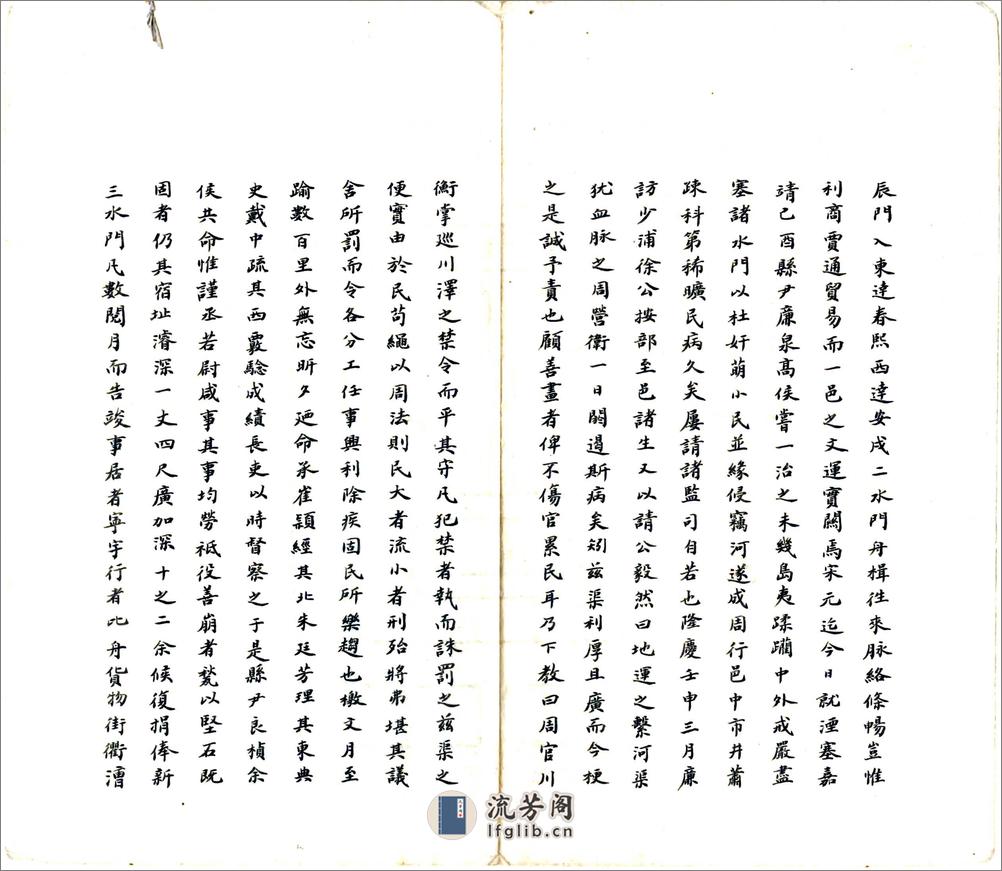 辰門入東達春熙西達安戌二水門舟楫徃來脉絡條暢豈惟
利商賈通貿易而一邑之文運實關焉宋元迄今日就湮塞嘉
靖己酉縣尹廉泉髙侯嘗一治之未幾島夷蹂躪中外戒嚴盡
塞諸水門以杜奸萌小民並緣侵竊河遂成周行邑中市井蕭
疎科第稀曠民病久矣屢請諸監司自若也隆慶壬申三月廉
訪少浦徐公按部至邑諸生又以請公毅然曰地運之繫河渠
犹血脉之周營衛一日閼遏斯病矣矧兹渠利厚且廣而今梗
之是誠予責也顧善畫者俾不傷官累民耳乃下教曰周官川
衡掌巡川澤之禁令而平其守凡犯禁者執而誅罰之兹渠之
便實由於民苟繩以周法則民大者流小者刑殆將弗堪其議
舍所罰而令各分工任事興利除疾固民所樂趨也檄文月至
踰數百里外無忘昕夕廼命丞崔頴經其北朱廷芳理其東典
史戴中疏其西覈騐成績長吏以時督察之于是縣尹良楨余
侯共命惟謹丞若尉咸事其事均勞祗役善崩者甃以堅石旣
固者仍其宿址濬深一丈四尺廣加深十之二余候復捐俸新
三水門凡數閱月而告竣事居者寧宇行者比舟貨物街衢漕
流芳阁
lfglib.cn